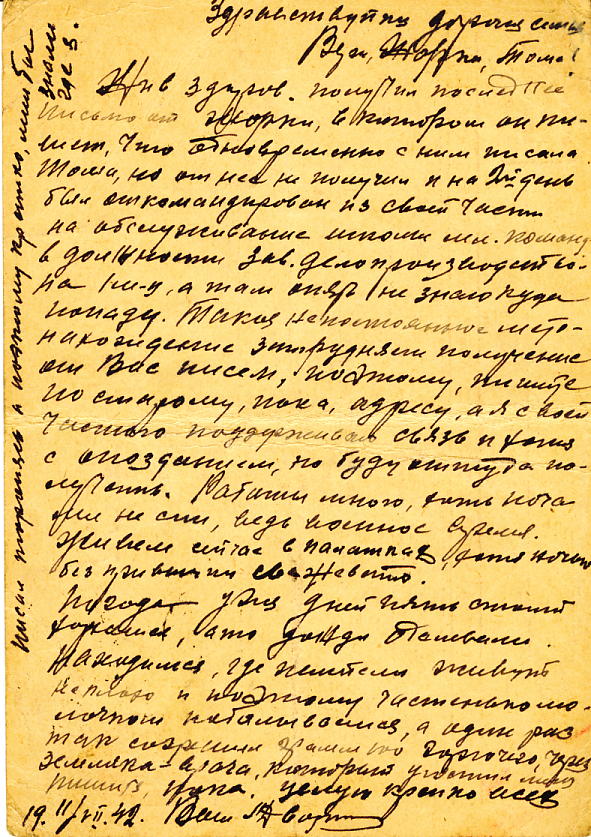 Здравствуйте дорогие
Вера, Жорка, Тома!
Жив здоров. получил последнее
письмо от Жорки, в котором он пи-
шет, что одновременно с ним писала
Тома, но от нее не получил и на 2й день
был откомандирован из своей части
на обслуживание школы мл. команд.
в должности зав. делопроизводством
на м-ц, а там опять не знаю куда
попаду. Такое непостоянное место-
нахождение затрудняет получение
от Вас писем, поэтому, пишите
по старому, пока, адресу, а я с своей
частью поддерживаю связь и хотя
с опозданием, но буду оттуда по-
лучать. Работы много, хоть ноча
ми не спи, ведь военное время.
Живем сейчас в палатках, хотя ночью
без привычки свежевато.
Погода уже дней пять стоит
хорошая, а то дожди
Находимся, где жители живут
неплохо и поэтому частенько мо-
лочком побаловаемся, а один раз
так сообразили грамм 100 горючего, через
земляка-врача, который угостил меня
пока. Целую крепко всех
19 11/VII. 42. Ваш
Писал торопясь и поэтому кратко, лишь бы
знали
где я.